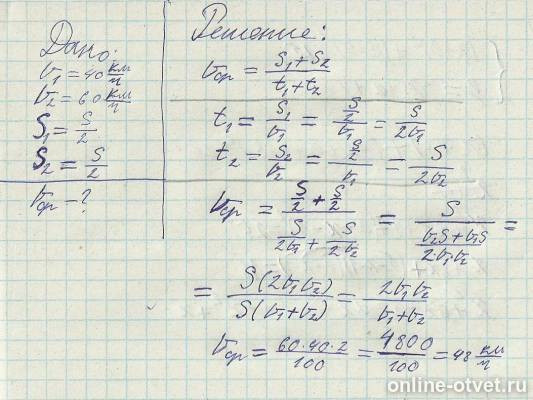 Дано:
v₁ = 40 км/ч
v₂ = 60 км/ч
S₁ = S/2
S₂ = S/2
vср - ?
Решение:
vср = (S₁ + S₂)/(t₁ + t₂)
t₁ = S₁/v₁ = (S/2)/v₁ = S/(2v₁)
t₂ = S₂/v₂ = (S/2)/v₁ = S/(2v₂)
vср = (S/2 + S/2)/(S/(2v₁) + S/(2v₂)) = S/((v₂S + v₁S)/(2v₁v₂)) =
= S(2v₁v₂)/S(v₁ + v₂) = 2v₁v₂/(v₁ + v₂)
vср = (60·40·2)/100 = 4800/100 = 48 км/ч
online-otvet.ru